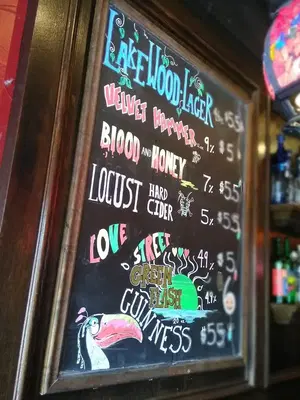 LAKEWOOD LAGER $5.5
VELVET HAMMER 9% $5
BLOOD AND HONEY 7% $5.5
LOCUST HARD CIDER 5% $5.5
LOVE STREET 4.9% $5
GREEN FLASH 4.9% $6
GUINNESS 20 oz $5.5